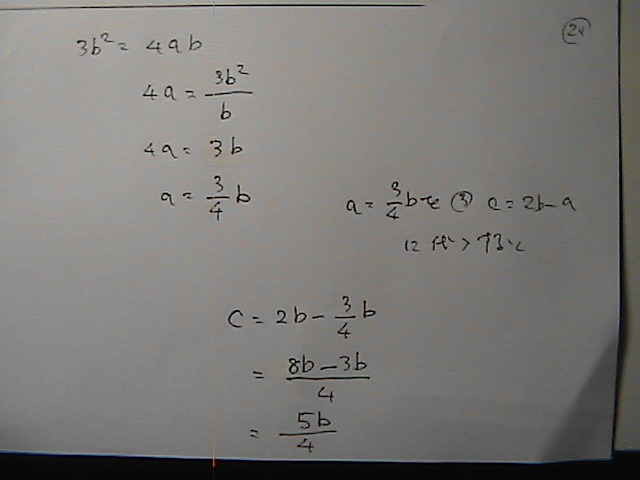 24
3b² = 4ab
4a = 3b²/b
4a = 3b
a = 3/4 b
a = 3/4 b ③ c = 2b - a
c = 2b - 3/4 b
= 8b - 3b/4
= 5b/4